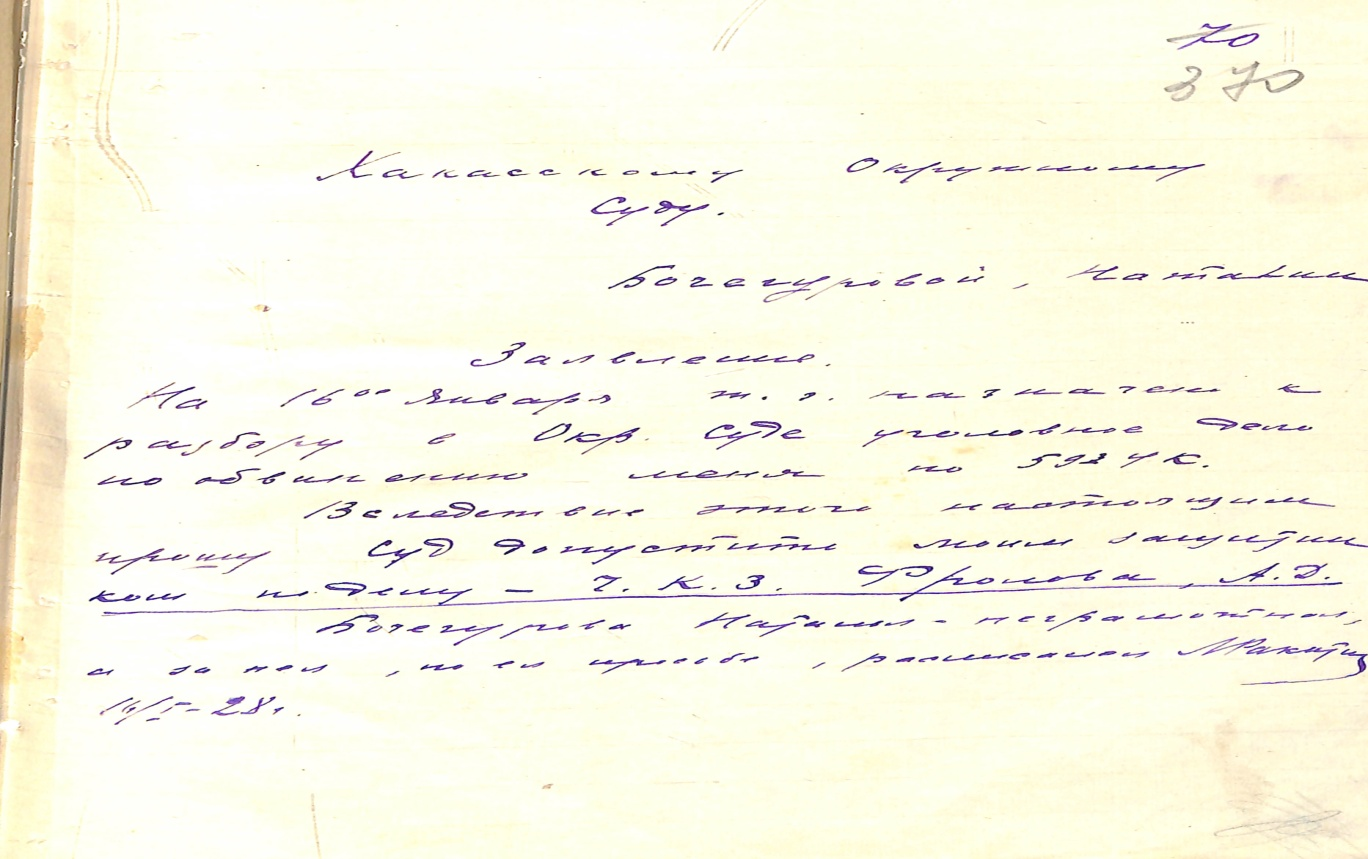 70
370
Хакасскому Окружному
Суду.
Бочегуровой, Наталии
Заявление.
На 16ое Января т. г. назначен к
разбору в Окр. Суде уголовное дело
по обвинению меня по 593 УК.
Вследствие этого настоящим
прошу Суд допустить моим защитни
ком по делу – Ч. К. З. Фролова, А. Д.
Бочегурова Наталия - неграмотная,
а за нея, по ея просьбе, расписался
16/I - 28 г.